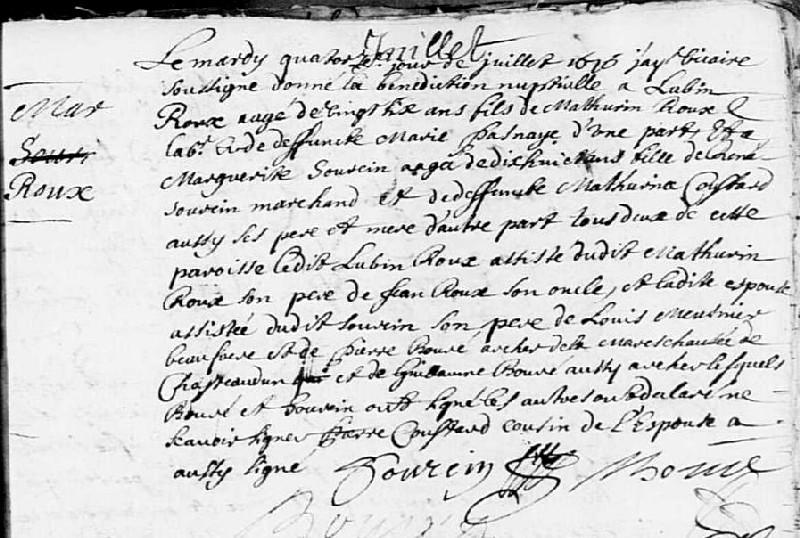 Juillet
Le mardy quatorze jour de juillet 16 jay vicaire
soussigne donné la benediction nuptialle a Lubin
Mar
Roux aagé de vingt six ans fils de Mathurin Roux
labr et de deffuncte Marie Pasnaye d'une part, Et a
Sour
Marguerite Sourcin agée de dixhuict ans fille de
Roux
Sourcin marchand et de deffuncte Mathurine Coustard
aussy ses pere et mere d'autre part tous deux de cette
paroisse ledit Lubin Roux assisté dudit Mathurin
Roux son pere de Jean Roux son oncle, et ladite espouse
assistée dudit Sourcin son pere de Louis Meusnier
beaufrere et de Pierre Bouré archer de la Mareschaussée de
Chasteaudun et de Guillaume Bouré aussy archer lesquels
Bouré et Sourcin ont signé les autres ont declaré ne
scavoir signer Pierre Coustard cousin de l'Espouse a
aussy signé Sourcin